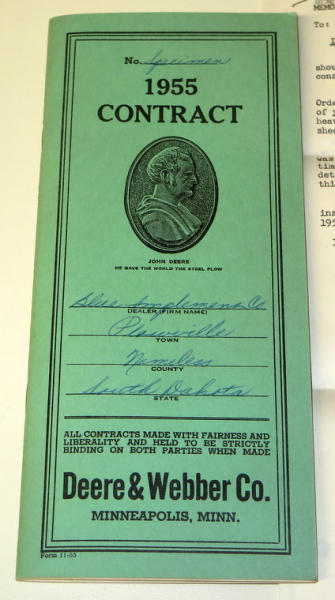 No. Specimen
1955
CONTRACT
JOHN DEERE
HE GAVE THE WORLD THE STEEL PLOW
Blue Implement Co
DEALER (FIRM NAME)
Plowville
TOWN
Nameless
COUNTY
South Dakota
STATE
ALL CONTRACTS MADE WITH FAIRNESS AND
LIBERALITY AND HELD TO BE STRICTLY
BINDING ON BOTH PARTIES WHEN MADE
Deere & Webber Co.
MINNEAPOLIS, MINN.
Form 11-55
MEMO
To:
shou
cons
Orde
of y
heav
shee
was
tim
det
thi
ins
195